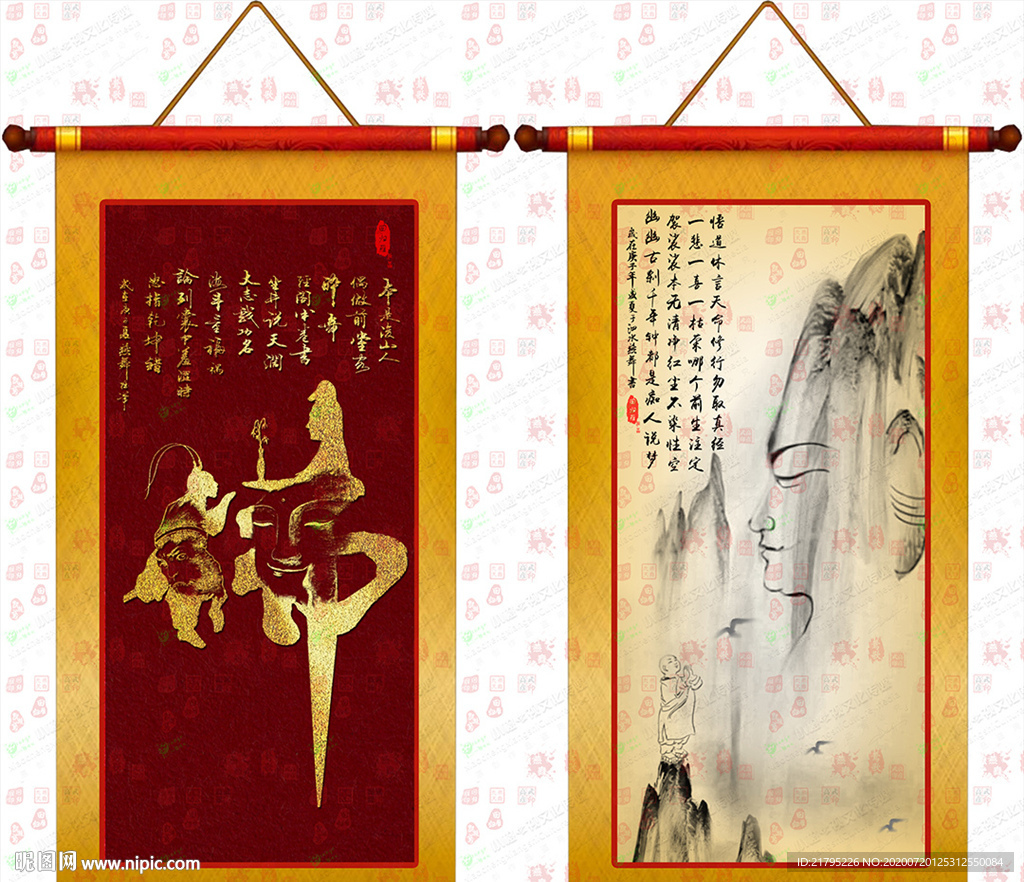 本是後山人
偶做前堂客
醉舞
经阁半卷書
坐井说天阔
大志戏功名
海斗量福禍
論到囊中羞涩時
怒指乾坤錯
悟道休言天命修行勿取真经
一悲一喜一枯荣哪个前生注定
袈裟裟本无清净红尘不染性空
幽幽古刹千年钟都是痴人说梦
岁在庚子年盛夏于泗水燕舞書
昵图网 www.nipic.com
ID:21795226 NO:20200720125312550084